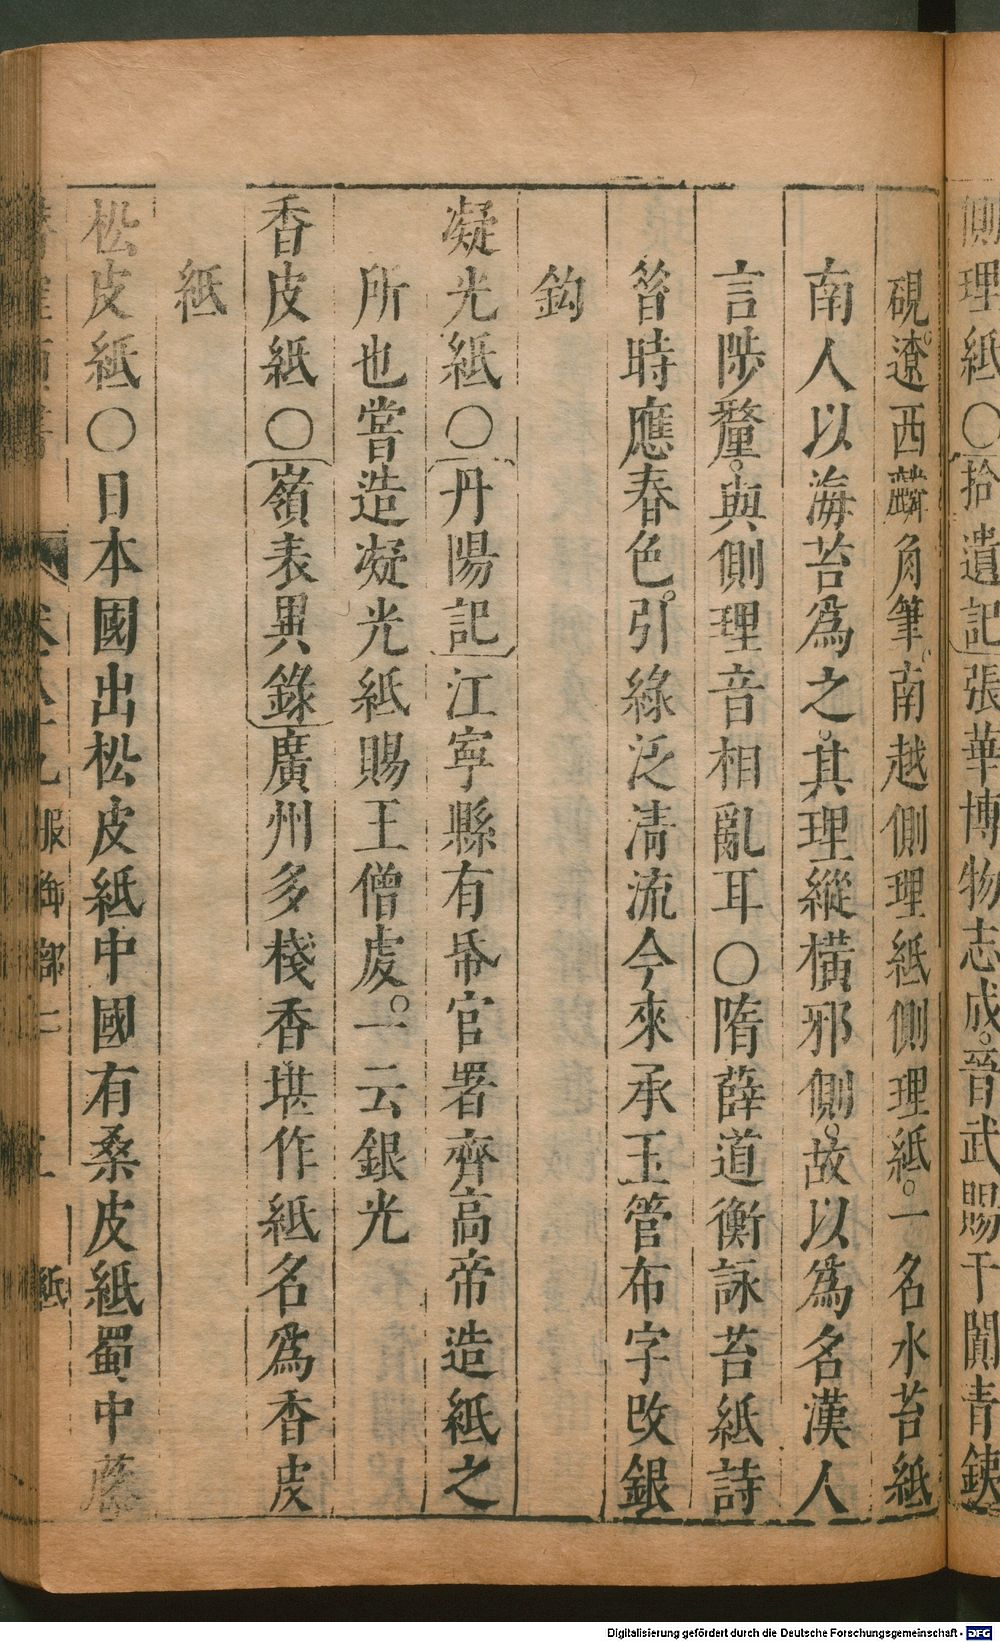 側理紙〇拾遺記張華博物志成。晉武賜于闐青鐵
硯。遼西麟角筆。南越側理紙側理紙。一名水苔紙
南人以海苔爲之。其理縱橫邪側。故以爲名漢人
言陟釐。與側理音相亂耳〇隋薛道衡詠苔紙詩
昝時應春色。引綠泛淸流今來承玉管布字改銀
鈎
凝光紙〇丹陽記江寧縣有帋官署齊高帝造紙之
所也嘗造凝光紙賜王僧虔。一云銀光
香皮紙〇嶺表異錄廣州多棧香堪作紙名爲香皮
紙
松皮紙〇日本國出松皮紙中國有桑皮紙蜀中藤
卷八十九 服御部二 紙
Digitalisierung gefördert durch die Deutsche Forschungsgemeinschaft - DFG